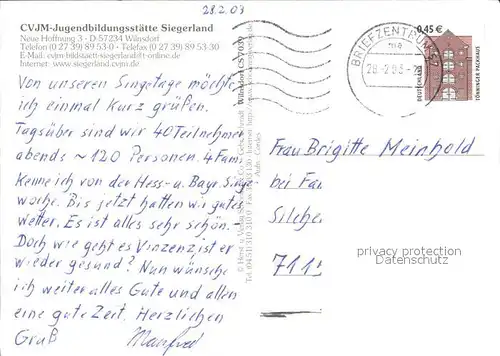 28.2.03
CVJM-Jugendbildungsstätte Siegerland
Neue Hoffnung 3 · D-57234 Wilnsdorf
Telefon (0 27 39) 89 53-0 · Telefax (0 27 39) 89 53-30
E-Mail: cvjm-bildsaett-siegerland@t-online.de
Internet: www.siegerland.cvjm.de
Von unseren Singetage möchte
ich einmal kurz grüßen.
Tagsüber sind wir 40 Teilnehmer
abends ~120 Personen. 4 Fam.
Kenne ich von der Hess- u. Bayr. Singe-
woche. Bis jetzt hatten wir gutes
Wetter. Es ist alles sehr schön. -
Doch wie geht es Vinzenz ist er
wieder gesund? Nun wünsche
ich weiter alles Gute und allen
eine gute Zeit. Herzlichen
Gruß Manfred
Wilnsdorf
BRIEFZENTRUM 57
28.-2.03
0,45 €
DEUTSCHE POST
TÖNNINGER PACKHAUS
Frau Brigitte Meinhold
bei Fa
Silche
711
privacy protection
Datenschutz